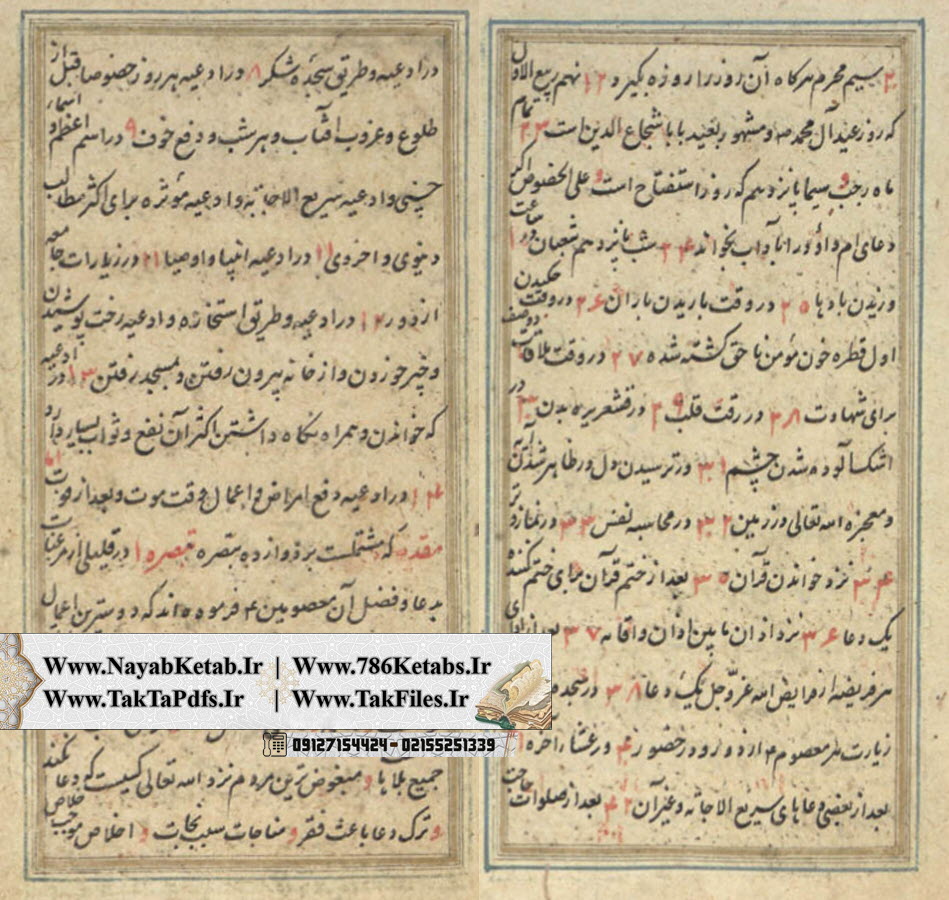 بیسیم محرم هرکاه آن روز را روزه بگیرد ۲۱ نهم ربیع الاول
که روز عید آل محمد صه و مشهور بعید بابا شجاع الدین است ۲۳ تمام
ماه رجب سیما پانزدهم که روز استفتاح است و علی الخصوص اکر
دعای ام داود را باداب بخواند ۲۴ شب پانزدهم شعبان
وزیدن بادها ۲۵ در وقت باریدن باران ۲۶ در وقت چکیدن
اول قطره خون مؤمن ناحق کشته شده ۲۷ در وقت ملاقات دو صف
برای شهادت ۲۸ در رقت قلب ۲۹ در قشعریره بدن ۳۰ در
اشک آلوده شدن چشم ۳۱ در ترسیدن دل و ظاهر شدن
و معجزه الله تعالی در زمین ۳۲ در محاسبه نفس ۳۳ در نماز وتر
۳۴ نزد خواندن قرآن ۳۵ بعد از ختم قرآن برای ختم کننده
یک دعا ۳۶ نزد اذان مابین اذان واقامه ۳۷ بعد از ادای
هر فریضه از فرایض الله عز وجل یک دعا ۳۸ در سجده
زیارت هر معصوم ۴ از دور و در حضور ۴۰ در عشاء آخره
بعد از بعضی دعاهای سریع الاجابه وغیر آن ۴۲ بعد از صلوات حاجت
در ادعیه و طریق سجده شکر ۸ در ادعیه هر روز خصوصا قبل از
طلوع و غروب آفتاب و هر شب و دفع خوف ۹ در اسم اعظم و اسماء
حسنی و ادعیه سریع الاجابه و ادعیه مؤثره برای اکثر مطالب
دنیوی و اخروی ۱۰ در ادعیه انبیا و اوصیا ۱۱ در زیارات جامعه
از دور ۱۲ در ادعیه و طریق استخاره و ادعیه رخت پوشیدن
و چیز خوردن و از خانه بیرون رفتن و بمسجد رفتن ۱۳ در ادعیه
که خواندن و همراه نکاه داشتن اکثر آن نفع و ثواب بسیار دارد
۱۴ در ادعیه دفع امراض و اعمال وقت موت و بعد از فوت اما
مقدمه که مشتملست بر دوازده تبصره تبصره ۱ در قلیلی از مرغبات
بدعا و فضل آن معصومین ۴ فرموده اند که دوست ترین اعمال
جمیع بلایا و مبغوض ترین مردم نزد الله تعالی کسیست که دعا نکند
و ترک دعا باعث فقر و مناجات سبب نجات و اخلاص موجب خلاص
Www.NayabKetab.Ir | Www.786Ketabs.Ir
Www.TakTaPdfs.Ir | Www.TakFiles.Ir
09127154424 - 02155251339